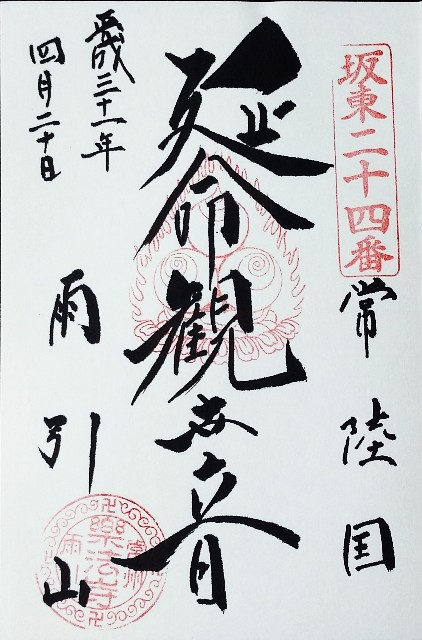 坂東二十四番
常陸国
延命観世音
平成三十一年
四月二十日
雨引山
常州
樂法寺
雨引